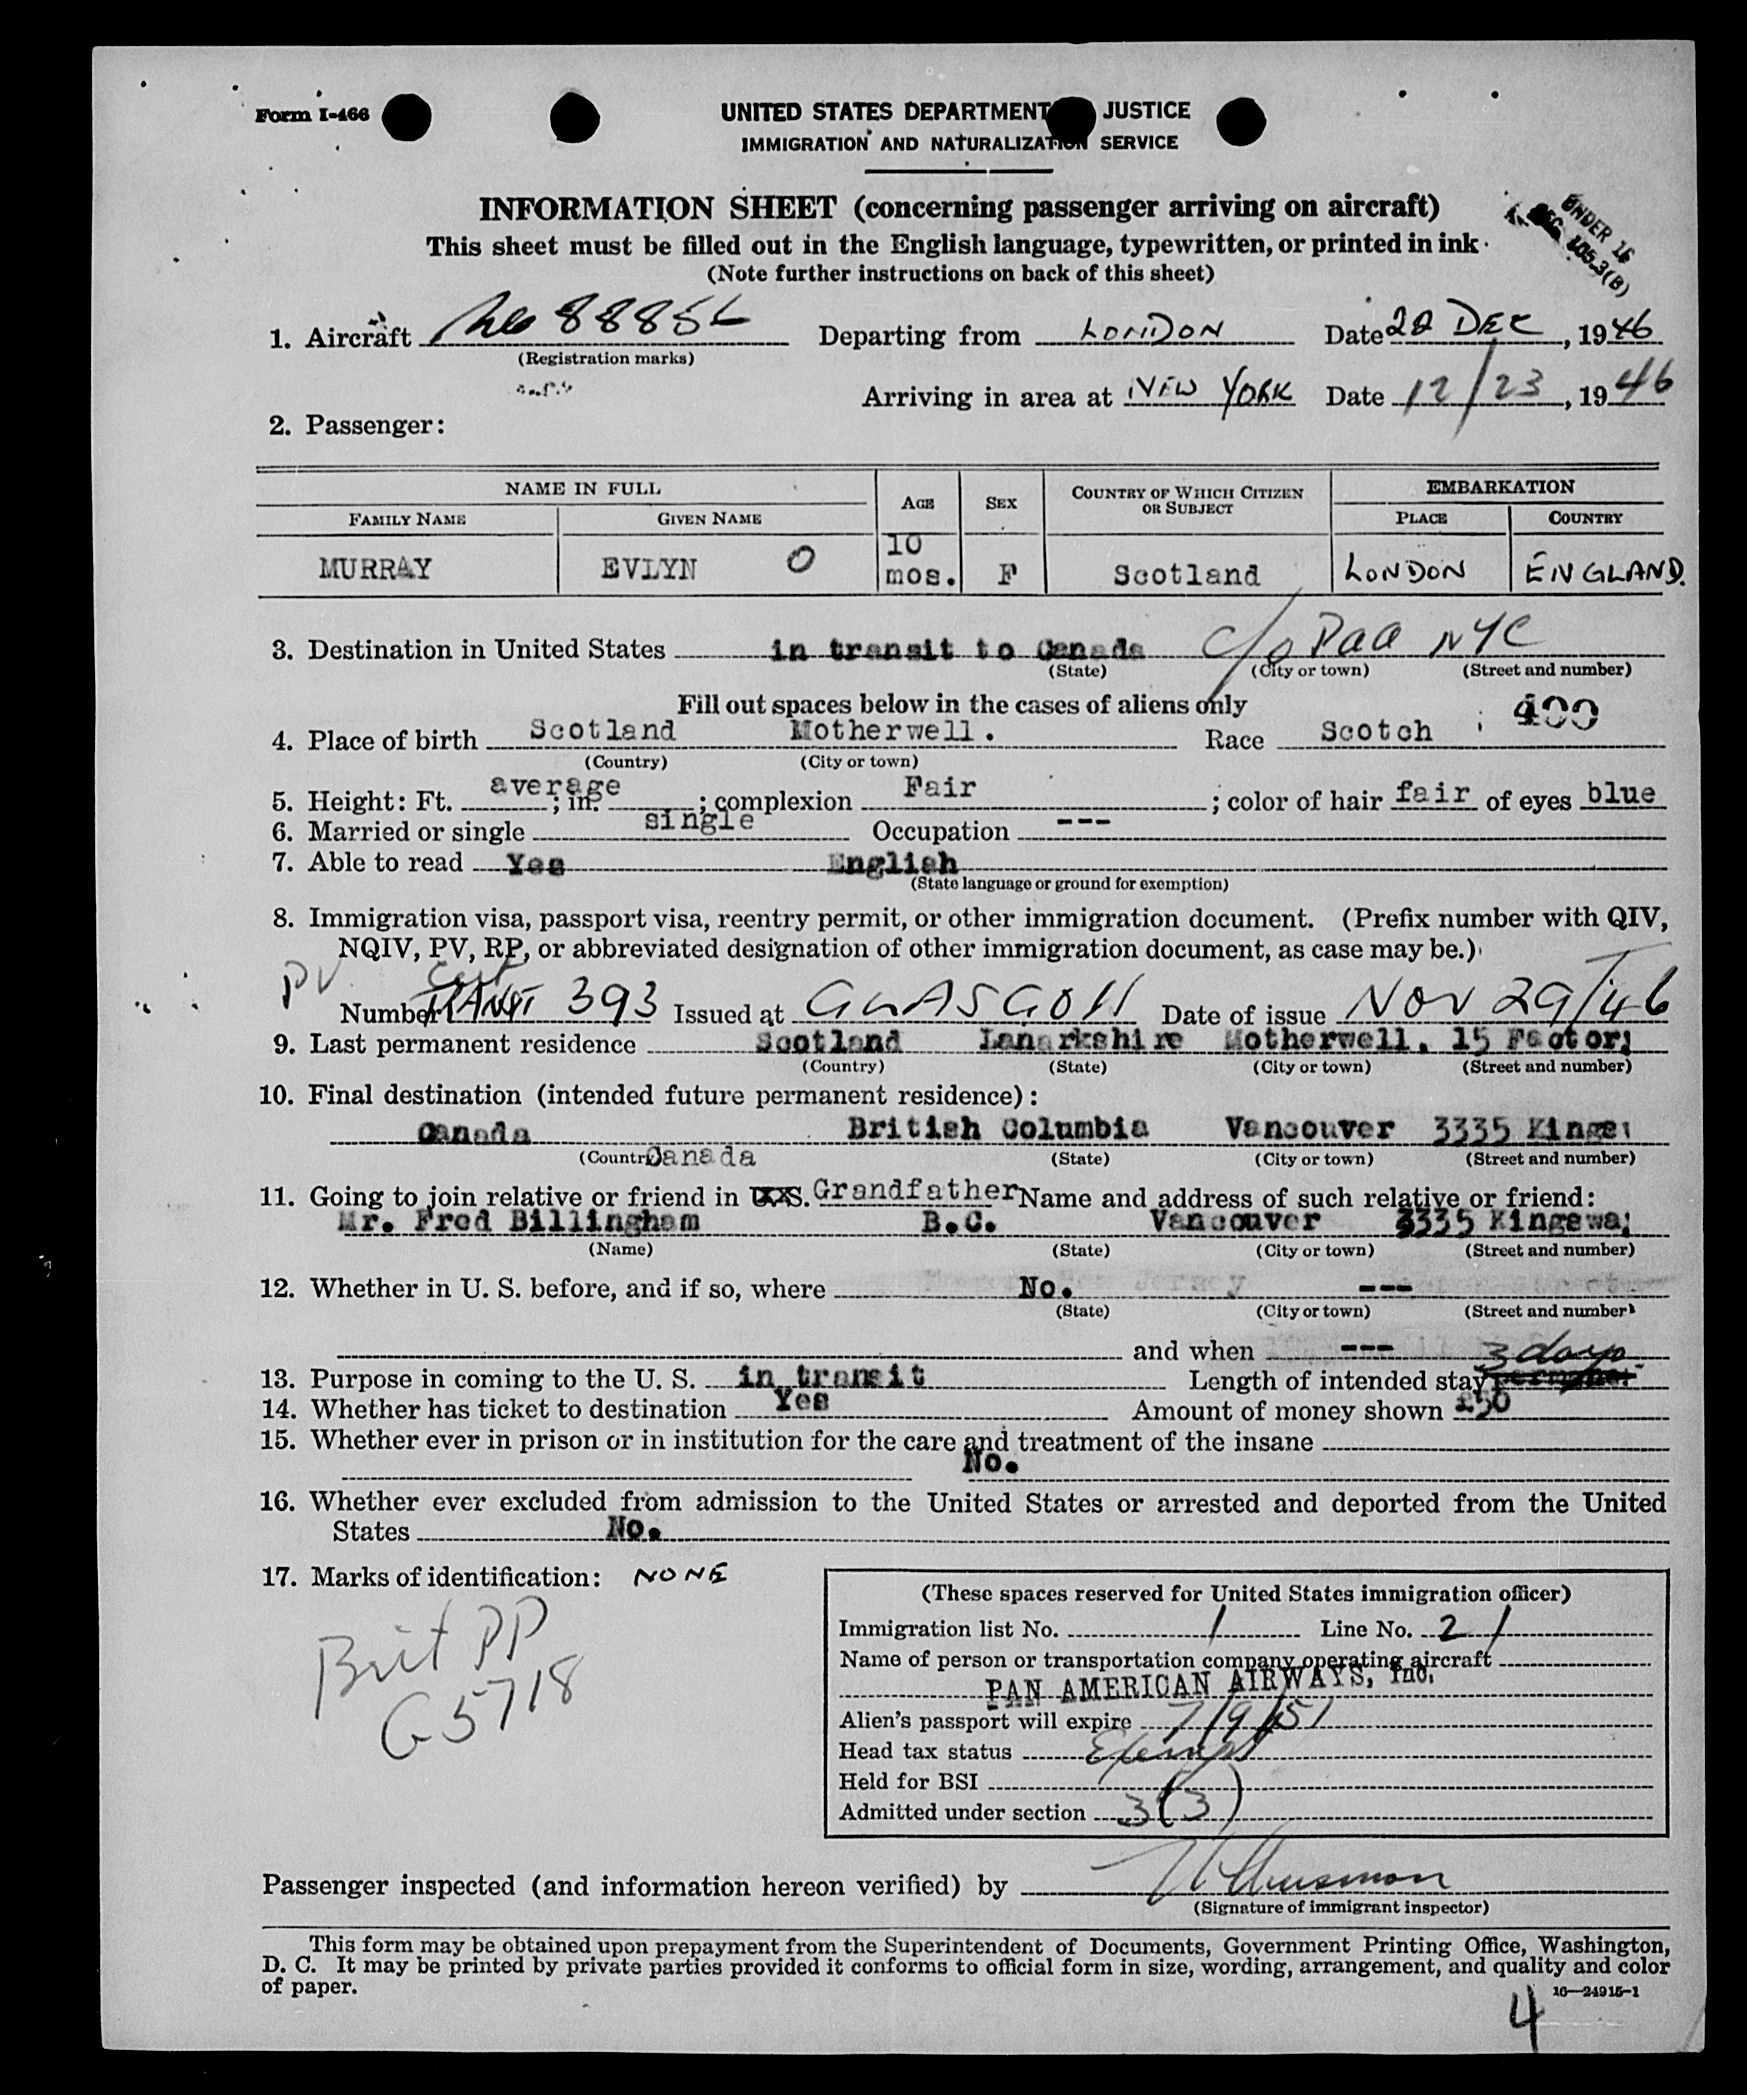 Form I-466
UNITED STATES DEPARTMENT JUSTICE
IMMIGRATION AND NATURALIZATION SERVICE
INFORMATION SHEET (concerning passenger arriving on aircraft)
This sheet must be filled out in the English language, typewritten, or printed in ink
(Note further instructions on back of this sheet)
UNDER 16
SEC 105.3(B)
1. Aircraft 88856 Departing from LONDON Date 22 DEC, 1946
(Registration marks)
Arriving in area at NEW YORK Date 12/23, 1946
2. Passenger:
NAME IN FULL AGE SEX COUNTRY OF WHICH CITIZEN OR SUBJECT EMBARKATION
FAMILY NAME GIVEN NAME PLACE COUNTRY
MURRAY EVLYN O 10 mos. F Scotland LONDON ENGLAND.
3. Destination in United States in transit to Canada c/o PAA NYC
(State) (City or town) (Street and number)
Fill out spaces below in the cases of aliens only
400
4. Place of birth Scotland Motherwell. Race Scotch
(Country) (City or town)
5. Height: Ft. average; in. ; complexion Fair; color of hair fair of eyes blue
6. Married or single single Occupation ---
7. Able to read Yes English
(State language or ground for exemption)
8. Immigration visa, passport visa, reentry permit, or other immigration document. (Prefix number with QIV,
NQIV, PV, RP, or abbreviated designation of other immigration document, as case may be.)
PV Cert
Number TRANSIT 393 Issued at GLASGOW Date of issue NOV 29/46
9. Last permanent residence Scotland Lanarkshire Motherwell. 15 Factory
(Country) (State) (City or town) (Street and number)
10. Final destination (intended future permanent residence):
Canada British Columbia Vancouver 3335 Kings
(Country) Canada (State) (City or town) (Street and number)
11. Going to join relative or friend in U.S. Grandfather Name and address of such relative or friend:
Mr. Fred Billingham B.C. Vancouver 3335 Kingsway
(Name) (State) (City or town) (Street and number)
12. Whether in U. S. before, and if so, where No. ---
(State) (City or town) (Street and number)
and when --- 3 days
13. Purpose in coming to the U. S. in transit Length of intended stay
14. Whether has ticket to destination Yes Amount of money shown £50
15. Whether ever in prison or in institution for the care and treatment of the insane
No.
16. Whether ever excluded from admission to the United States or arrested and deported from the United
States No.
17. Marks of identification: NONE
Brit PP
G5718
(These spaces reserved for United States immigration officer)
Immigration list No. 1 Line No. 2 1
Name of person or transportation company operating aircraft
PAN AMERICAN AIRWAYS, Inc.
Alien's passport will expire 7/9/51
Head tax status Exempt
Held for BSI
Admitted under section 3(3)
Passenger inspected (and information hereon verified) by
(Signature of immigrant inspector)
This form may be obtained upon prepayment from the Superintendent of Documents, Government Printing Office, Washington,
D. C. It may be printed by private parties provided it conforms to official form in size, wording, arrangement, and quality and color
of paper.
16—24915-1
4